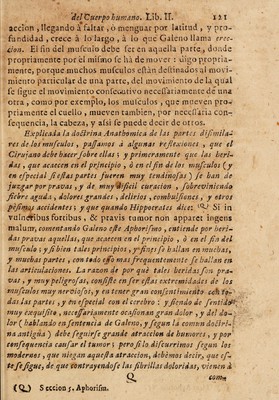 del Cuerpo humano. Lib. II. 121
accion, llegando à faltar, ò menguar por latitud, y pro-
fundidad, crece à lo largo, à lo que Galeno llama erec-
cion. El fin del musculo debe ser en aquella parte, donde
propriamente por el mismo se hà de mover: digo propria-
mente, porque muchos musculos están destinados al movi-
miento particular de una parte, del movimiento de la qual
se sigue el movimiento consecutivo necessariamente de una
otra, como por exemplo, los musculos, que mueven pro-
priamente el cuello, mueven tambien, por necessaria con-
sequencia, la cabeza, y assi se puede decir de otros.
Explicada la doctrina Anathomica de las partes dissimila-
res de los musculos, passamos à algunas reflexiones, que el
Cirujano debe hacer sobre ellas: y primeramente que las heri-
das, que acaecen en el principio, ò en el fin de los musculos (y
en especial si estas partes fueren muy tendinosas) se han de
juzgar por pravas, y de muy dificil curacion, sobreviniendo
fiebre aguda, dolores grandes, delirios, combulsiones, y otros
pessimos accidentes; y que quando Hippocrates dice: (Q) Si in
vulneribus fortibus, & pravis tumor non apparet ingens
malum, comentando Galeno este Aphorismo, entiende por heri-
das pravas aquellas, que acaecen en el principio, ò en el fin del
musculo: y si bien tales principios, y fines se hallan en muchas,
y muchas partes, con todo esso mas frequentemente se hallan en
las articulaciones. La razon de por què tales heridas son pra-
vas, y muy peligrosas, consiste en ser estas extremidades de los
musculos muy nerviosas, y en tener gran consentimiento con to-
das las partes, y en especial con el cerebro: y siendo de sentido
muy exquisito, necessariamente ocasionan gran dolor, y del do-
lor (hablando en sentencia de Galeno, y segun la comun doctri-
na antigua) debe seguirse grande atraccion de humores, y por
consequencia causar el tumor; pero si lo discurrimos segun los
modernos, que niegan aquesta atraccion, debèmos decir, que es-
te se sigue, de que contrayendose las fibrillas doloridas, vienen à
Q como
(Q) Seccion 5. Aphorism.